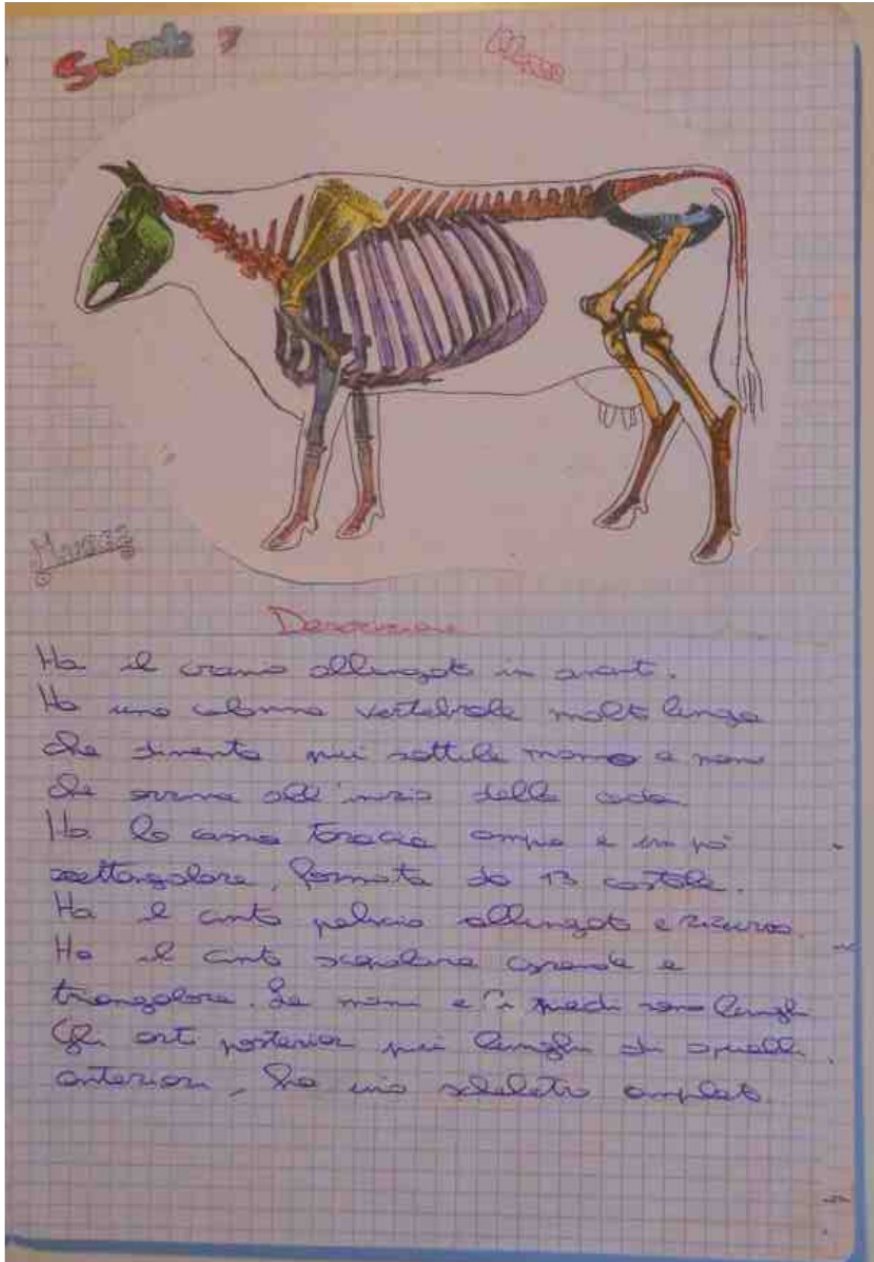 Scheda 7
Mucca
Descrizione
Ha il cranio allungato in avant.
Ha una colonna vertebrale molto lunga
che diventa più sottile mano a mano
che arriva all'inizio della coda.
Ha la cassa toracica ampia e un pò
rettangolare, formata da 13 costole.
Ha il cinto pelvico allungato e ricurvo.
Ha il cinto scapolare grande e
triangolare. Le mani e i piedi sono lunghi
Gli arti posteriori più lunghi di quelli
anteriori, ha uno scheletro completo.